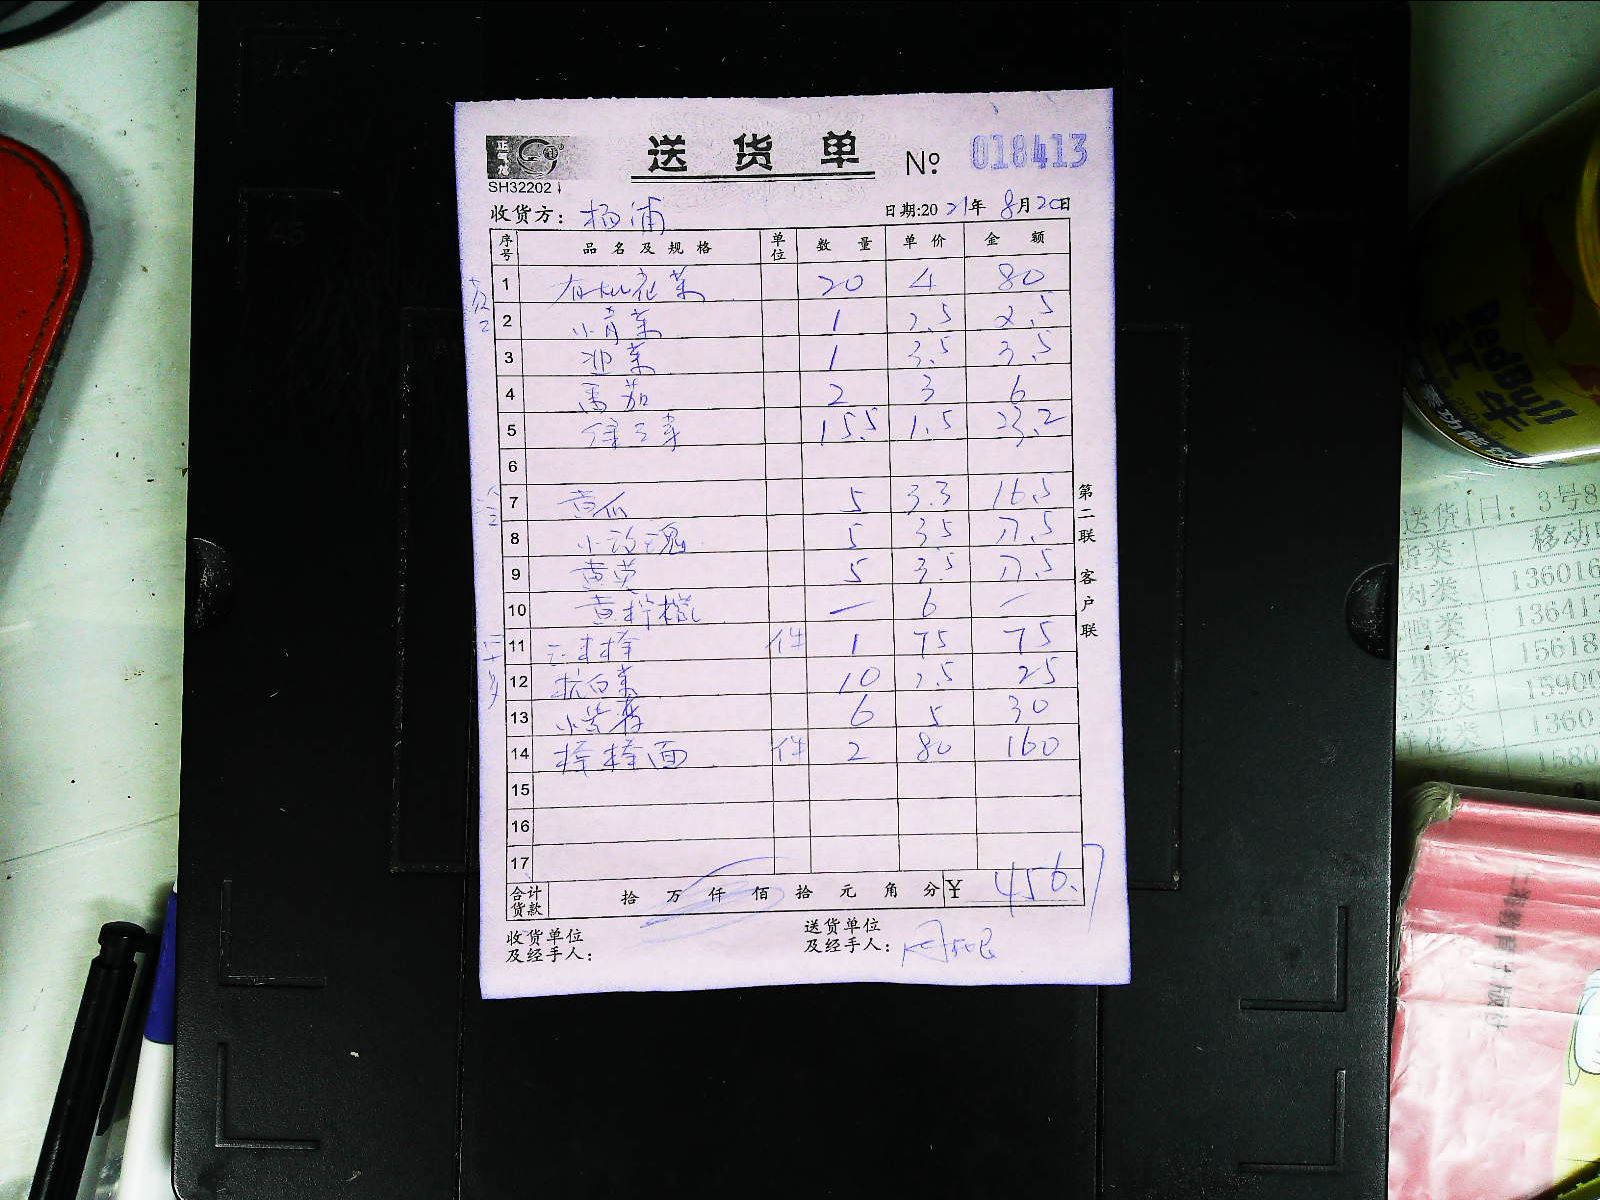 正气龙
送货单 № 018413
SH32202
收货方: 杨浦 日期:2021年 8月20日
序号 品名及规格 单位 数量 单价 金额
1 有机花菜 20 4 80
2 小青菜 1 2.5 2.5
3 1 3.5 3.5
4 番茄 2 3 6
5 15.5 1.5 23.2
6
7 黄瓜 5 3.3 16.5
8 小玫瑰 5 3.5 17.5
9 5 3.5 17.5
10 黄柠檬 — 6 —
11 件 1 75 75
12 杭白菜 10 2.5 25
13 6 5 30
14 棒棒面 件 2 80 160
15
16
17
合计货款 拾 万 仟 佰 拾 元 角 分 ¥ 456.7
收货单位及经手人:
送货单位及经手人:
第二联 客户联
RedBull
红牛
送货日: 3号8
移动
肉类 136016
鸭类 13641
果类 15618
菜类 15900
花类 1360
1580